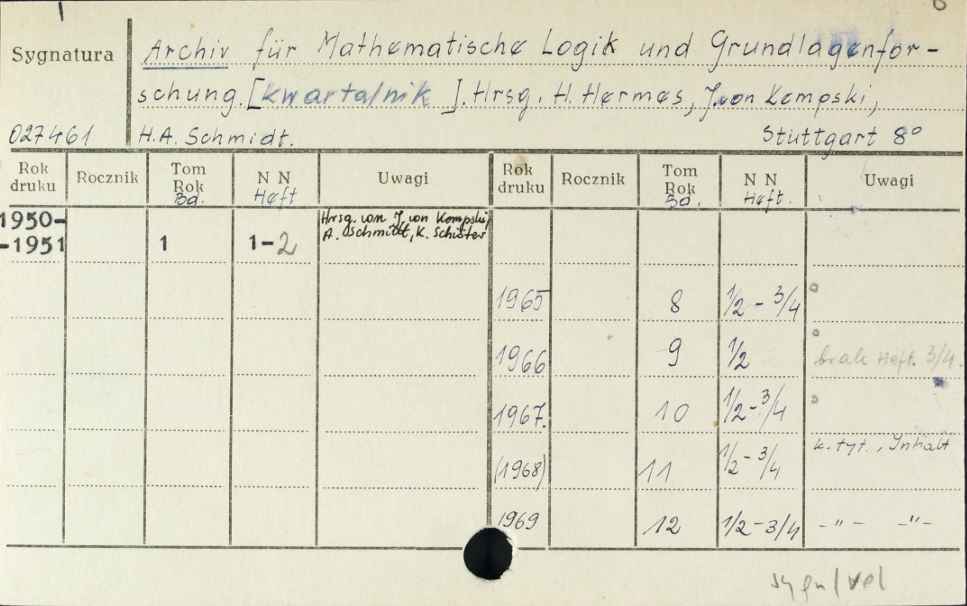 Sygnatura Archiv für Mathematische Logik und Grundlagenfor-
schung. [kwartalnik]. Hrsg. H. Hermes, J. von Kempski,
027461 H.A. Schmidt. Stuttgart 8°
Rok druku Rocznik Tom Rok Bd. N N Heft Uwagi Rok druku Rocznik Tom Rok Bd. N N Heft. Uwagi
1950- Hrsg. von J. von Kempski,
-1951 1 1-2 A. Schmidt, K. Schüter
1965 8 1/2 - 3/4
1966 9 1/2 brak Heft. 3/4.
1967. 10 1/2 - 3/4
k. tyt., Inhalt
(1968) 11 1/2 - 3/4
1969 12 1/2 - 3/4 -"- -"-